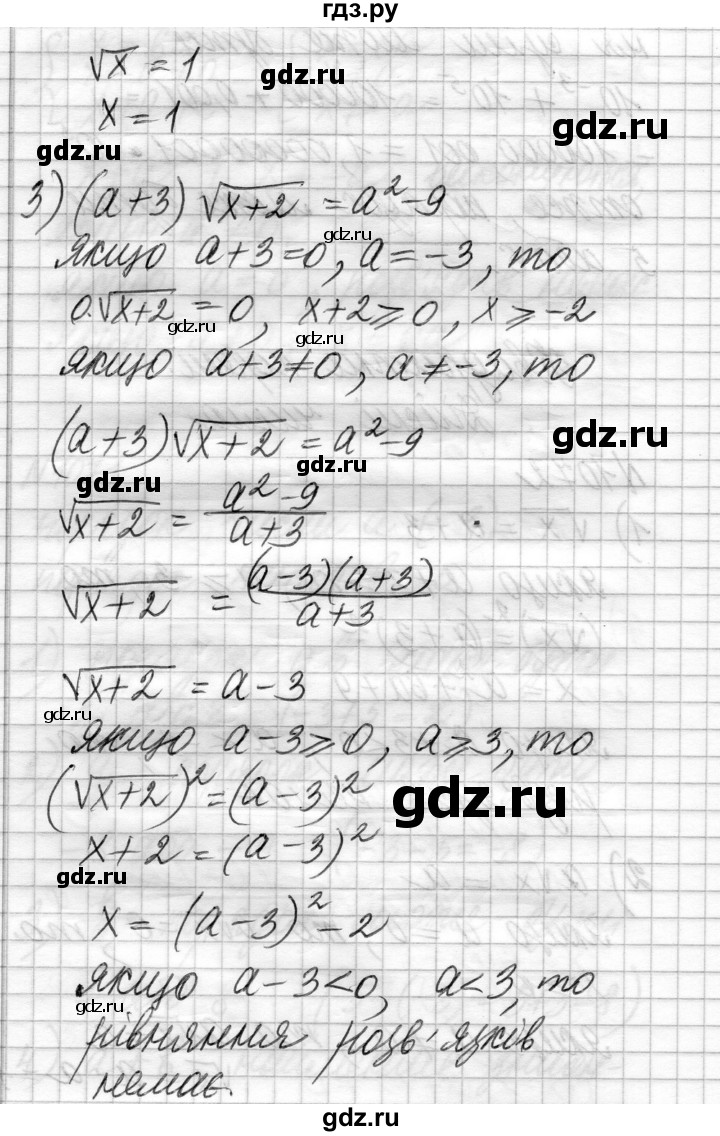 гдз.ру
√x = 1
gdz.ru
x = 1
gdz.ru
gdz.ru
3) (a+3) √x+2 = a² - 9
gdz.ru
якщо a+3=0, a=-3, то
0·√x+2 = 0, x+2⩾0, x⩾-2
gdz.ru
gdz.ru
якщо a+3≠0, a≠-3, то
(a+3)√x+2 = a²-9
gdz.ru
gdz.ru
gdz.ru
√x+2 = a²-9 / a+3
√x+2 = (a-3)(a+3) / a+3
√x+2 = a-3
gdz.ru
якщо a-3⩾0, a⩾3, то
(√x+2)² = (a-3)²
gdz.ru
x+2 = (a-3)²
gdz.ru
x = (a-3)² - 2
якщо a-3<0, a<3, то
gdz.ru
рівняння розв'язків
немає.
gdz.ru